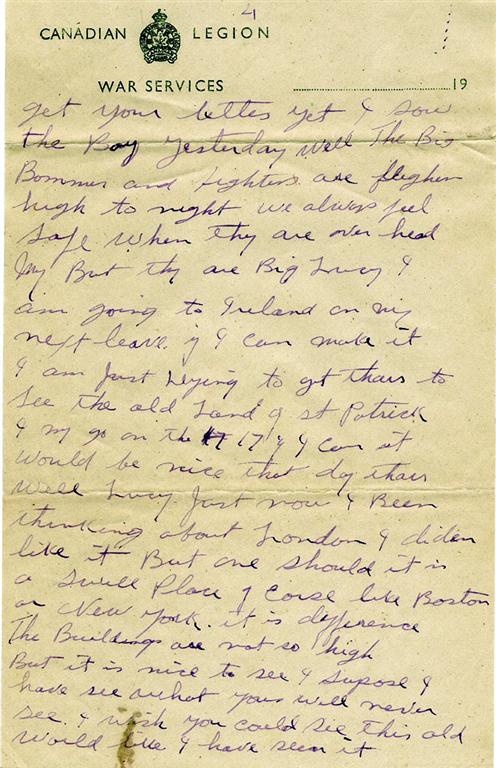 4
CANADIAN LEGION
WAR SERVICES 19
get your letter yet I saw
the Boy yesterday well The Big
Bommer and fighters are flighen
high to night we always feel
safe when thy are over head
My But thy are Big Lucy I
am going to Ireland on my
next leave if I can make it
I am Just trying to get thair to
see the old Land of st Patrick
I my go on the 17 if I can it
would be nice that dy thair
well Lucy Just now I Been
thinking about London I diden
like it But one should it is
a Swell Place of Corse like Boston
or New York. it is difference
The Buildings are not so high
But it is nice to see I supose I
have see what yous will never
see. I wish you could see this old
world like I have seen it